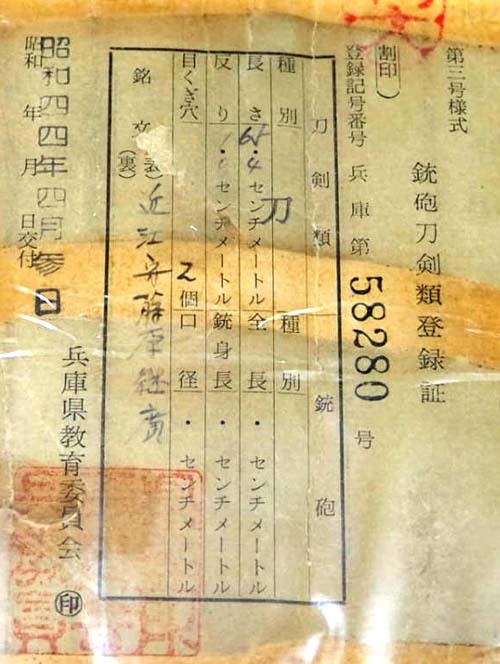 第三号様式
銃砲刀剣類登録証
(割印)
登録記号番号 兵庫第 58280 号
刀剣類 銃砲
種別 刀 種別
長さ ・4センチメートル 全長 ・ センチメートル
反り ・ センチメートル 銃身長 ・ センチメートル
目くぎ穴 2個 口径 ・ センチメートル
銘文 (表) 近江守藤原継廣
(裏)
昭和四四年四月参日
昭和 年 月 日交付
兵庫県教育委員会 印